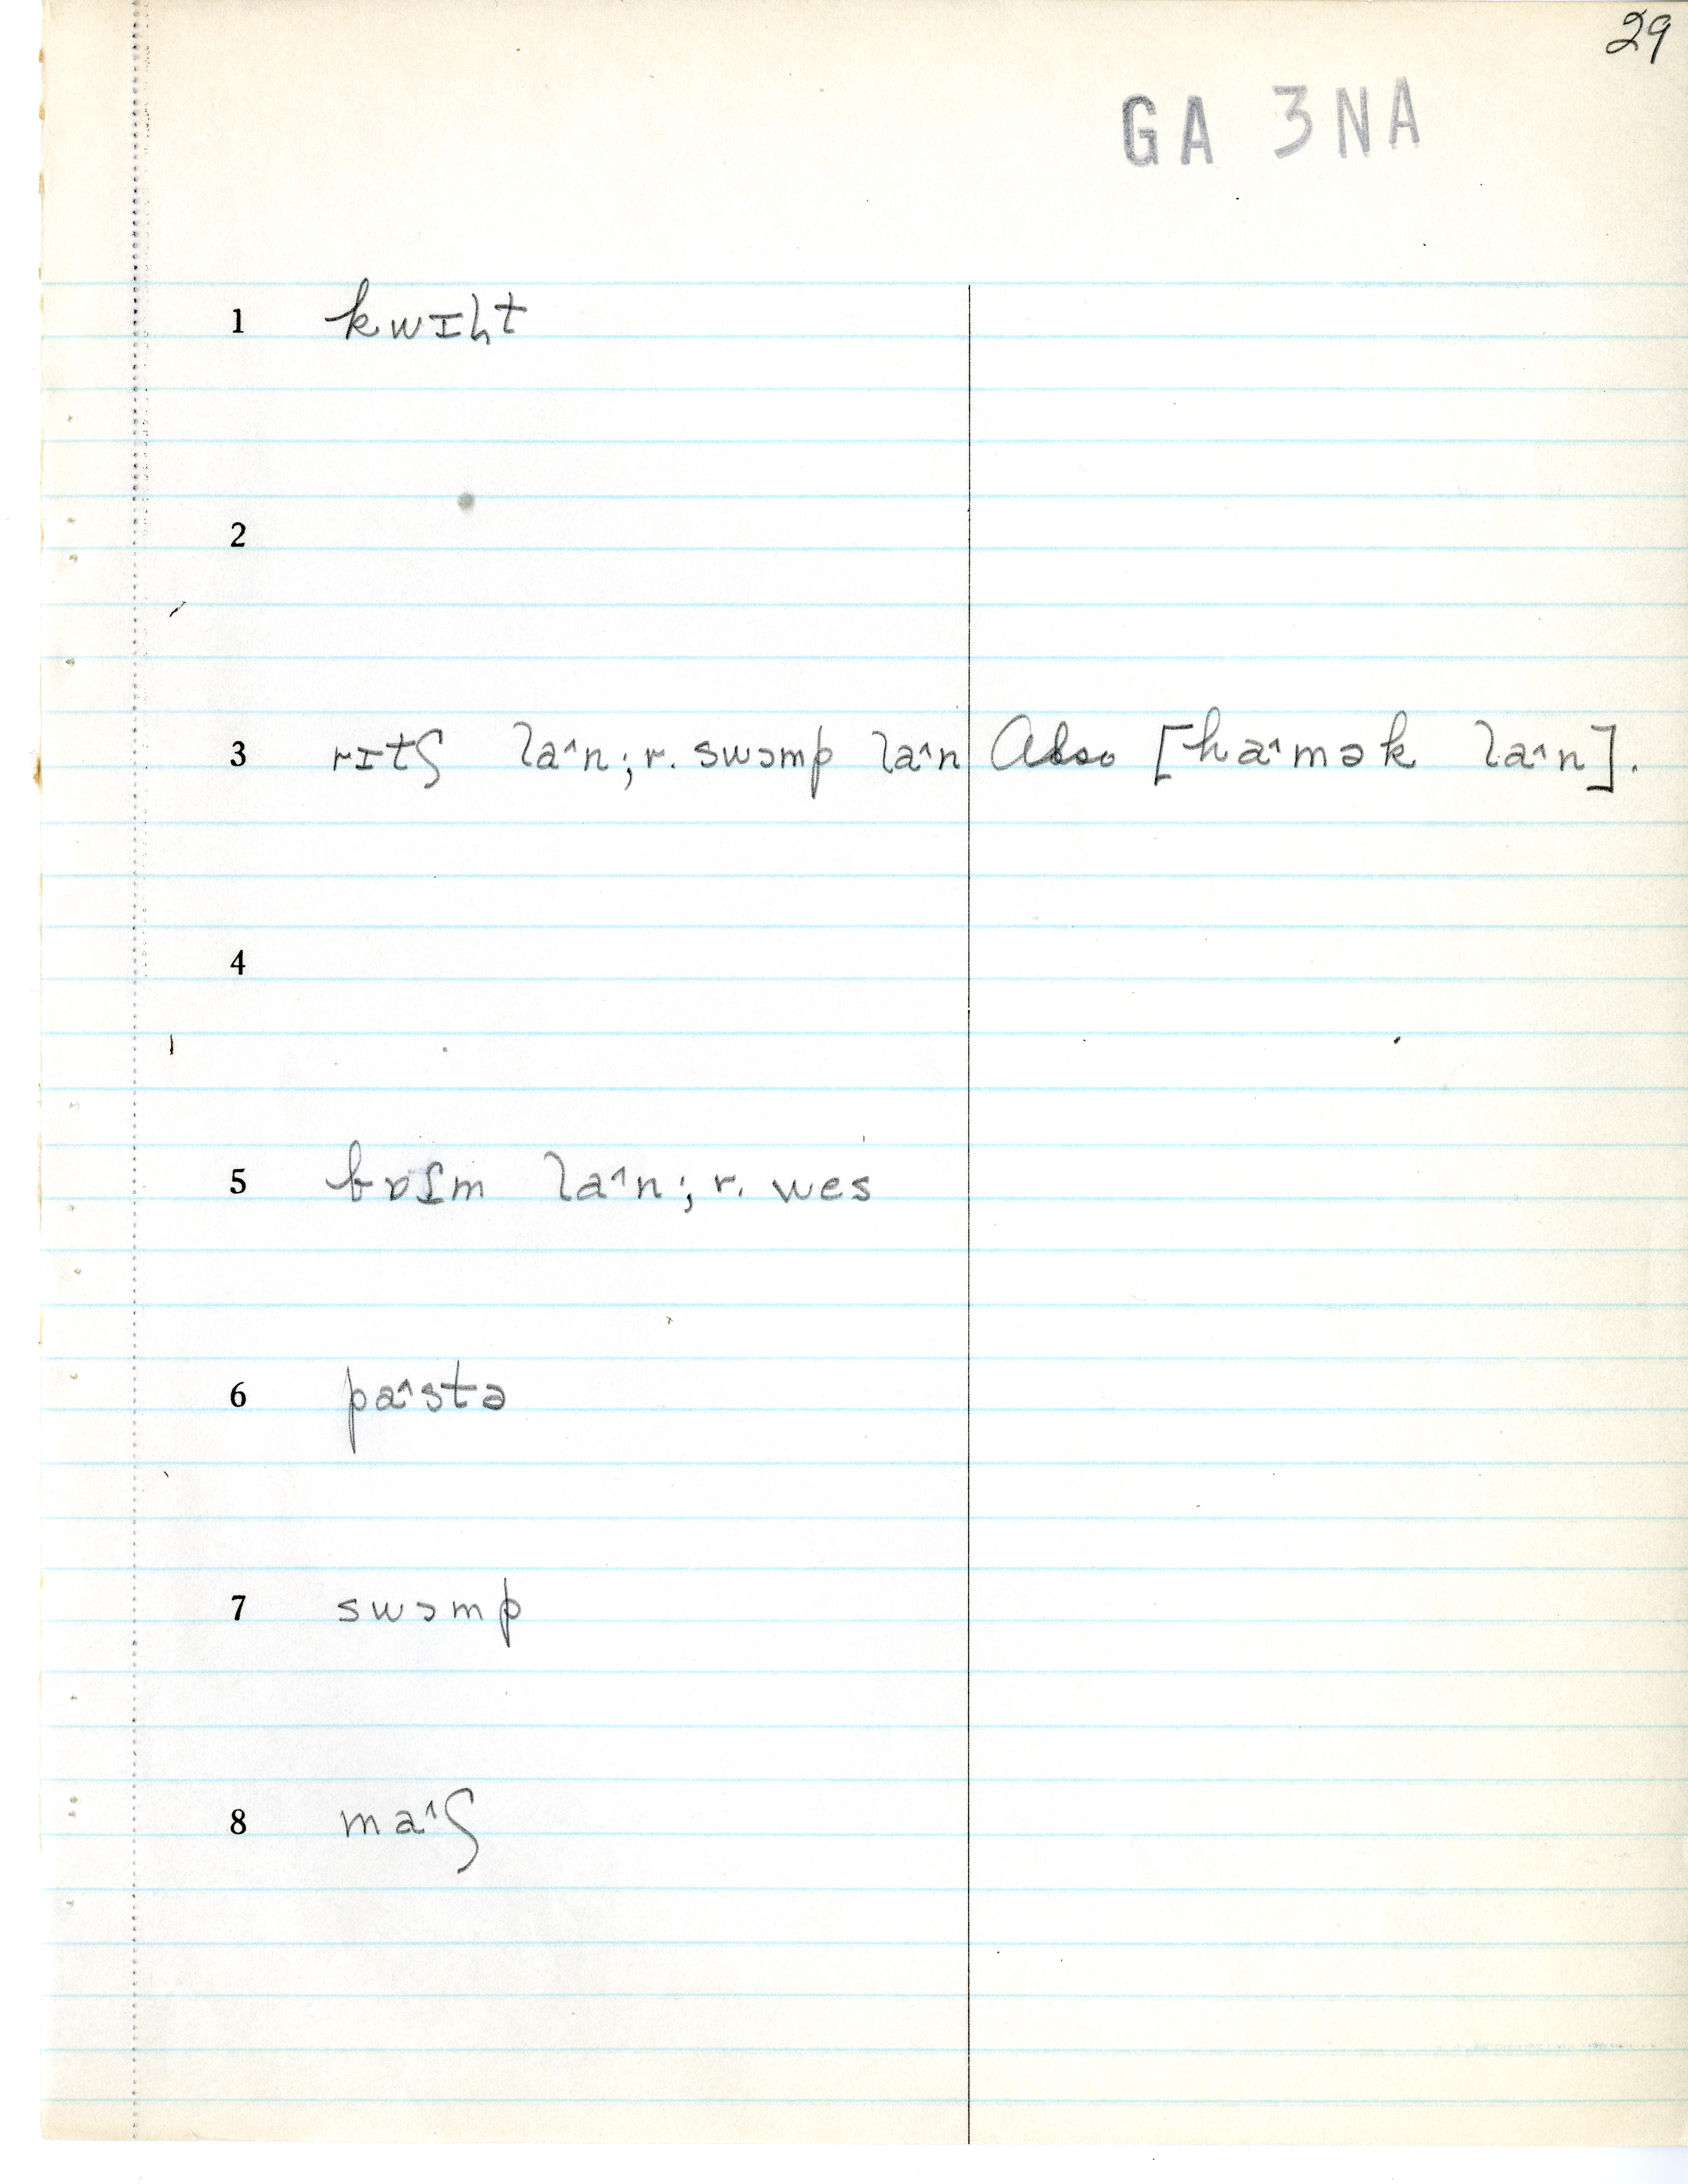 29
GA 3NA
1 kwɪɦt
2
3 rɪtʃ la^n; r. swɔmp la^n Also [ha^mək la^n].
4
5 bɒɪm la^n; r. wes
6 pa^stə
7 swɔmp
8 ma^ʃ